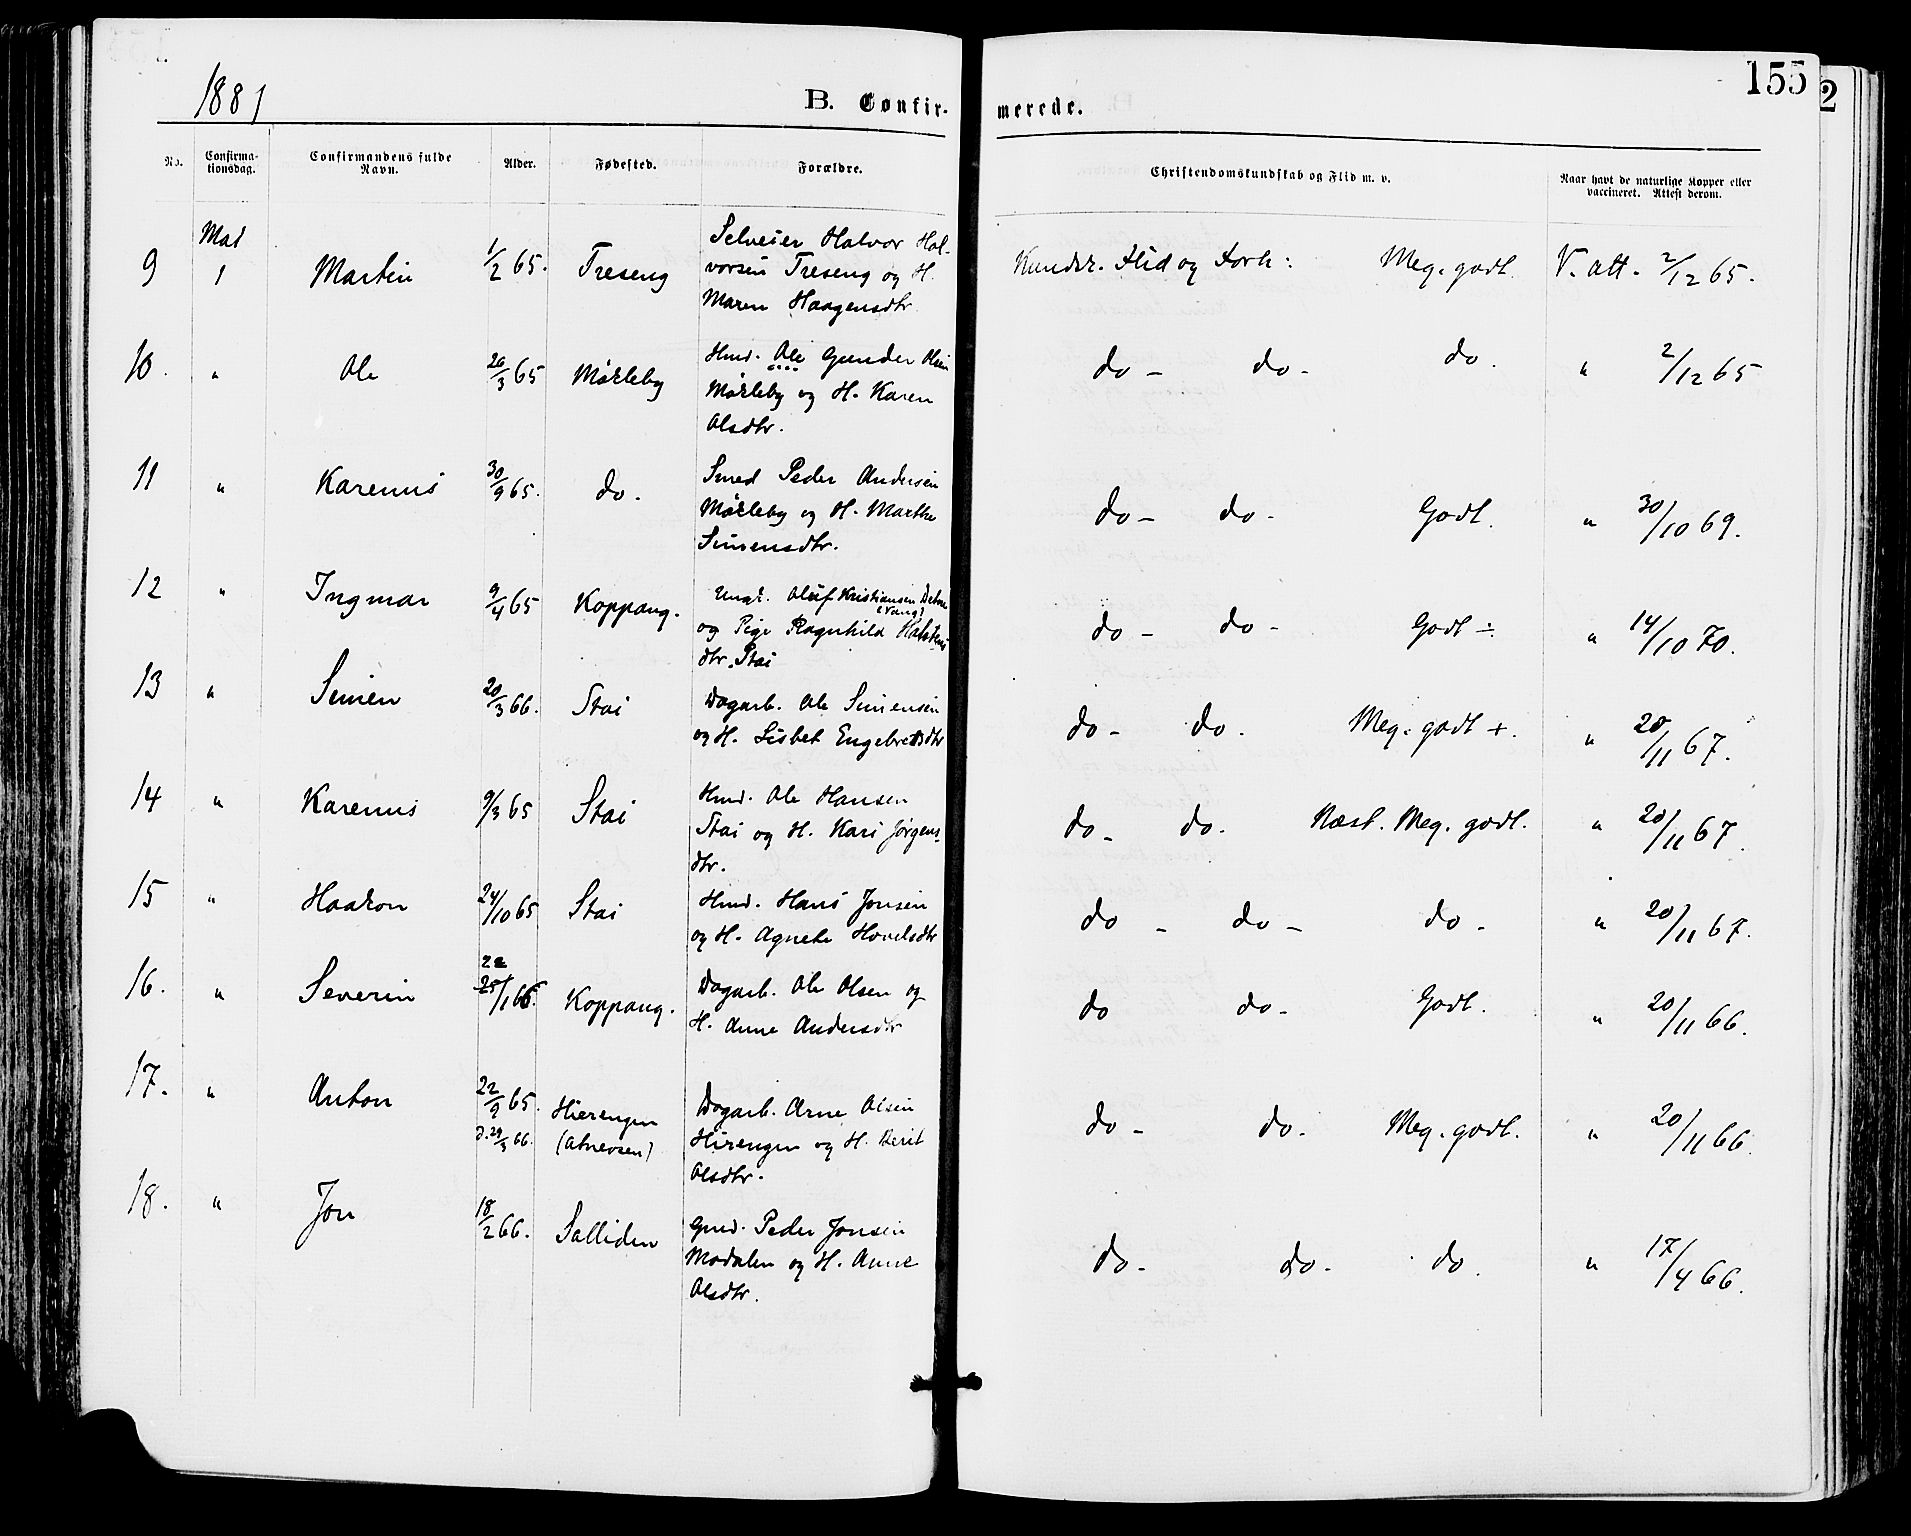 155
2
1881
B. Confir-
merede.
No.
Confirma-
tionsdag.
Confirmandens fulde
Navn.
Alder.
Fødested.
Forældre.
Christendomskundskab og Flid m. v.
Naar havt de naturlige Kopper eller
vaccineret. Attest derom.
9 Mai 1 Martin 1/2 65. Treseng
Selveier Halvor Hal-
vorsen Treseng og H.
Maren Haagensdtr
Kundsk. Flid og Forh: Meg. godt V. att. 2/12 65.
10. " Ole 26/3 65 Mørkeby
Hmd. Ole Gunder Olsen
Mørkeby og H. Karen
Olsdtr.
do - do - do. " 2/12 65
11 " Karenus 30/9 65. do.
Smed Peder Andersen
Mørkeby og H. Marthe
Simensdtr.
do - do - Godt. " 30/10 69.
12 " Ingmar 9/4 65 Koppang.
Ungk. Oluf Kristiansen
(Vang)
og Pige Ragnhild Halstens
dtr. Stai
do - do - Godt ÷ " 14/10 70.
13 " Simen 20/3 66. Stai
Dagarb. Ole Simensen
og H. Lisbet Engebretsdtr
do - do. Meg. godt +. " 20/11 67.
14 " Karenus 9/3 65 Stai
Hmd. Ole Hansen
Stai og H. Kari Jørgens-
dtr.
do - do. Næst. Meg. godt. " 20/11 67.
15 " Haakon 24/10 65 Stai
Hmd. Hans Jonsen
og H. Agnete Hovelsdtr
do - do - do - " 20/11 67.
16. " Severin 22 25/1 66. Koppang.
Dagarb. Ole Olsen og
H. Anne Andersdtr
do do - Godt. " 20/11 66.
17. " Anton 22/9 65. Hirengen
d. 29/3 66. (Atneosen)
Dagarb. Arne Olsen
Hirengen og H. Berit
Olsdtr.
do - do. Meg. godt. " 20/11 66.
18. " Jon 18/2 66. Solliden
Gmd. Peder Jonsen
Modalen og H. Anne
Olsdtr.
do - do - do. " 17/4 66.